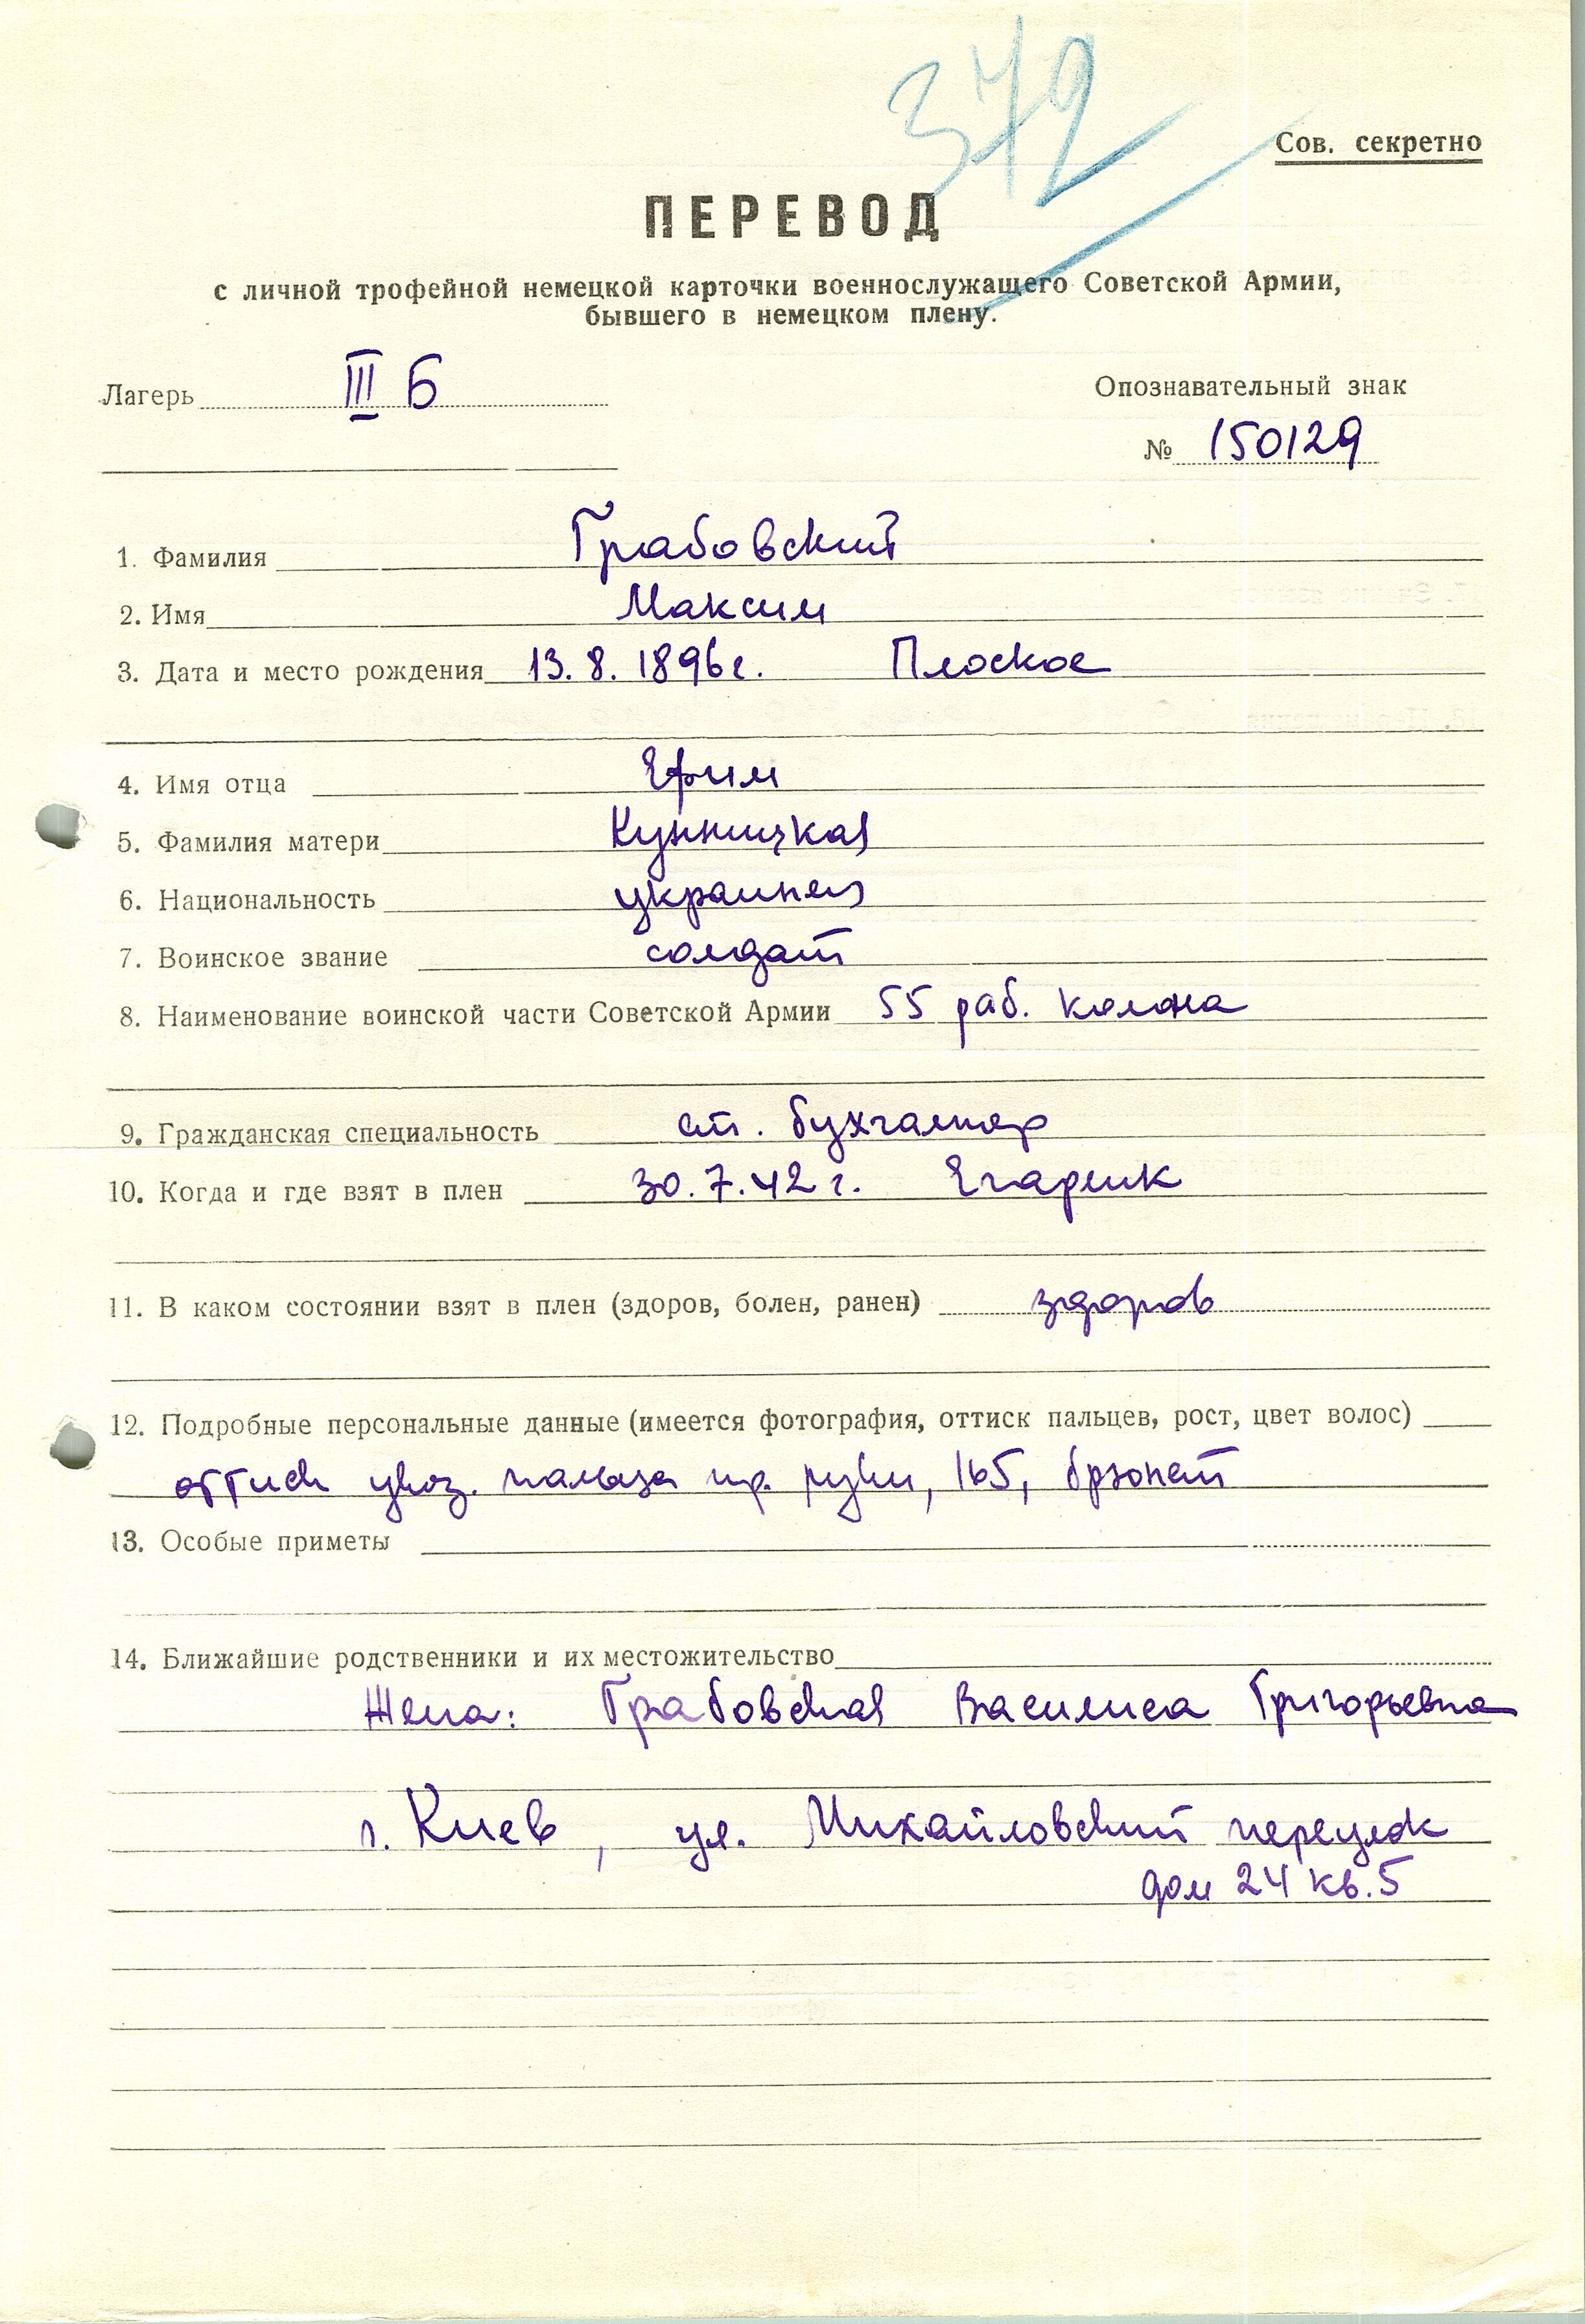 372
Сов. секретно
ПЕРЕВОД
с личной трофейной немецкой карточки военнослужащего Советской Армии,
бывшего в немецком плену.
Лагерь III Б
Опознавательный знак
№ 150129
1. Фамилия Грабовский
2. Имя Максим
3. Дата и место рождения 13.8.1896г. Плоское
4. Имя отца Ефим
5. Фамилия матери Кунницкая
6. Национальность украинец
7. Воинское звание солдат
8. Наименование воинской части Советской Армии 55 раб. колона
9. Гражданская специальность ст. бухгалтер
10. Когда и где взят в плен 30.7.42 г. Егарлик
11. В каком состоянии взят в плен (здоров, болен, ранен) здоров
12. Подробные персональные данные (имеется фотография, оттиск пальцев, рост, цвет волос)
оттиск указ. пальца пр. руки, 165, брюнет
13. Особые приметы
14. Ближайшие родственники и их местожительство
Жена: Грабовская Василиса Григорьевна
г. Киев, ул. Михайловский переулок
дом 24 кв. 5